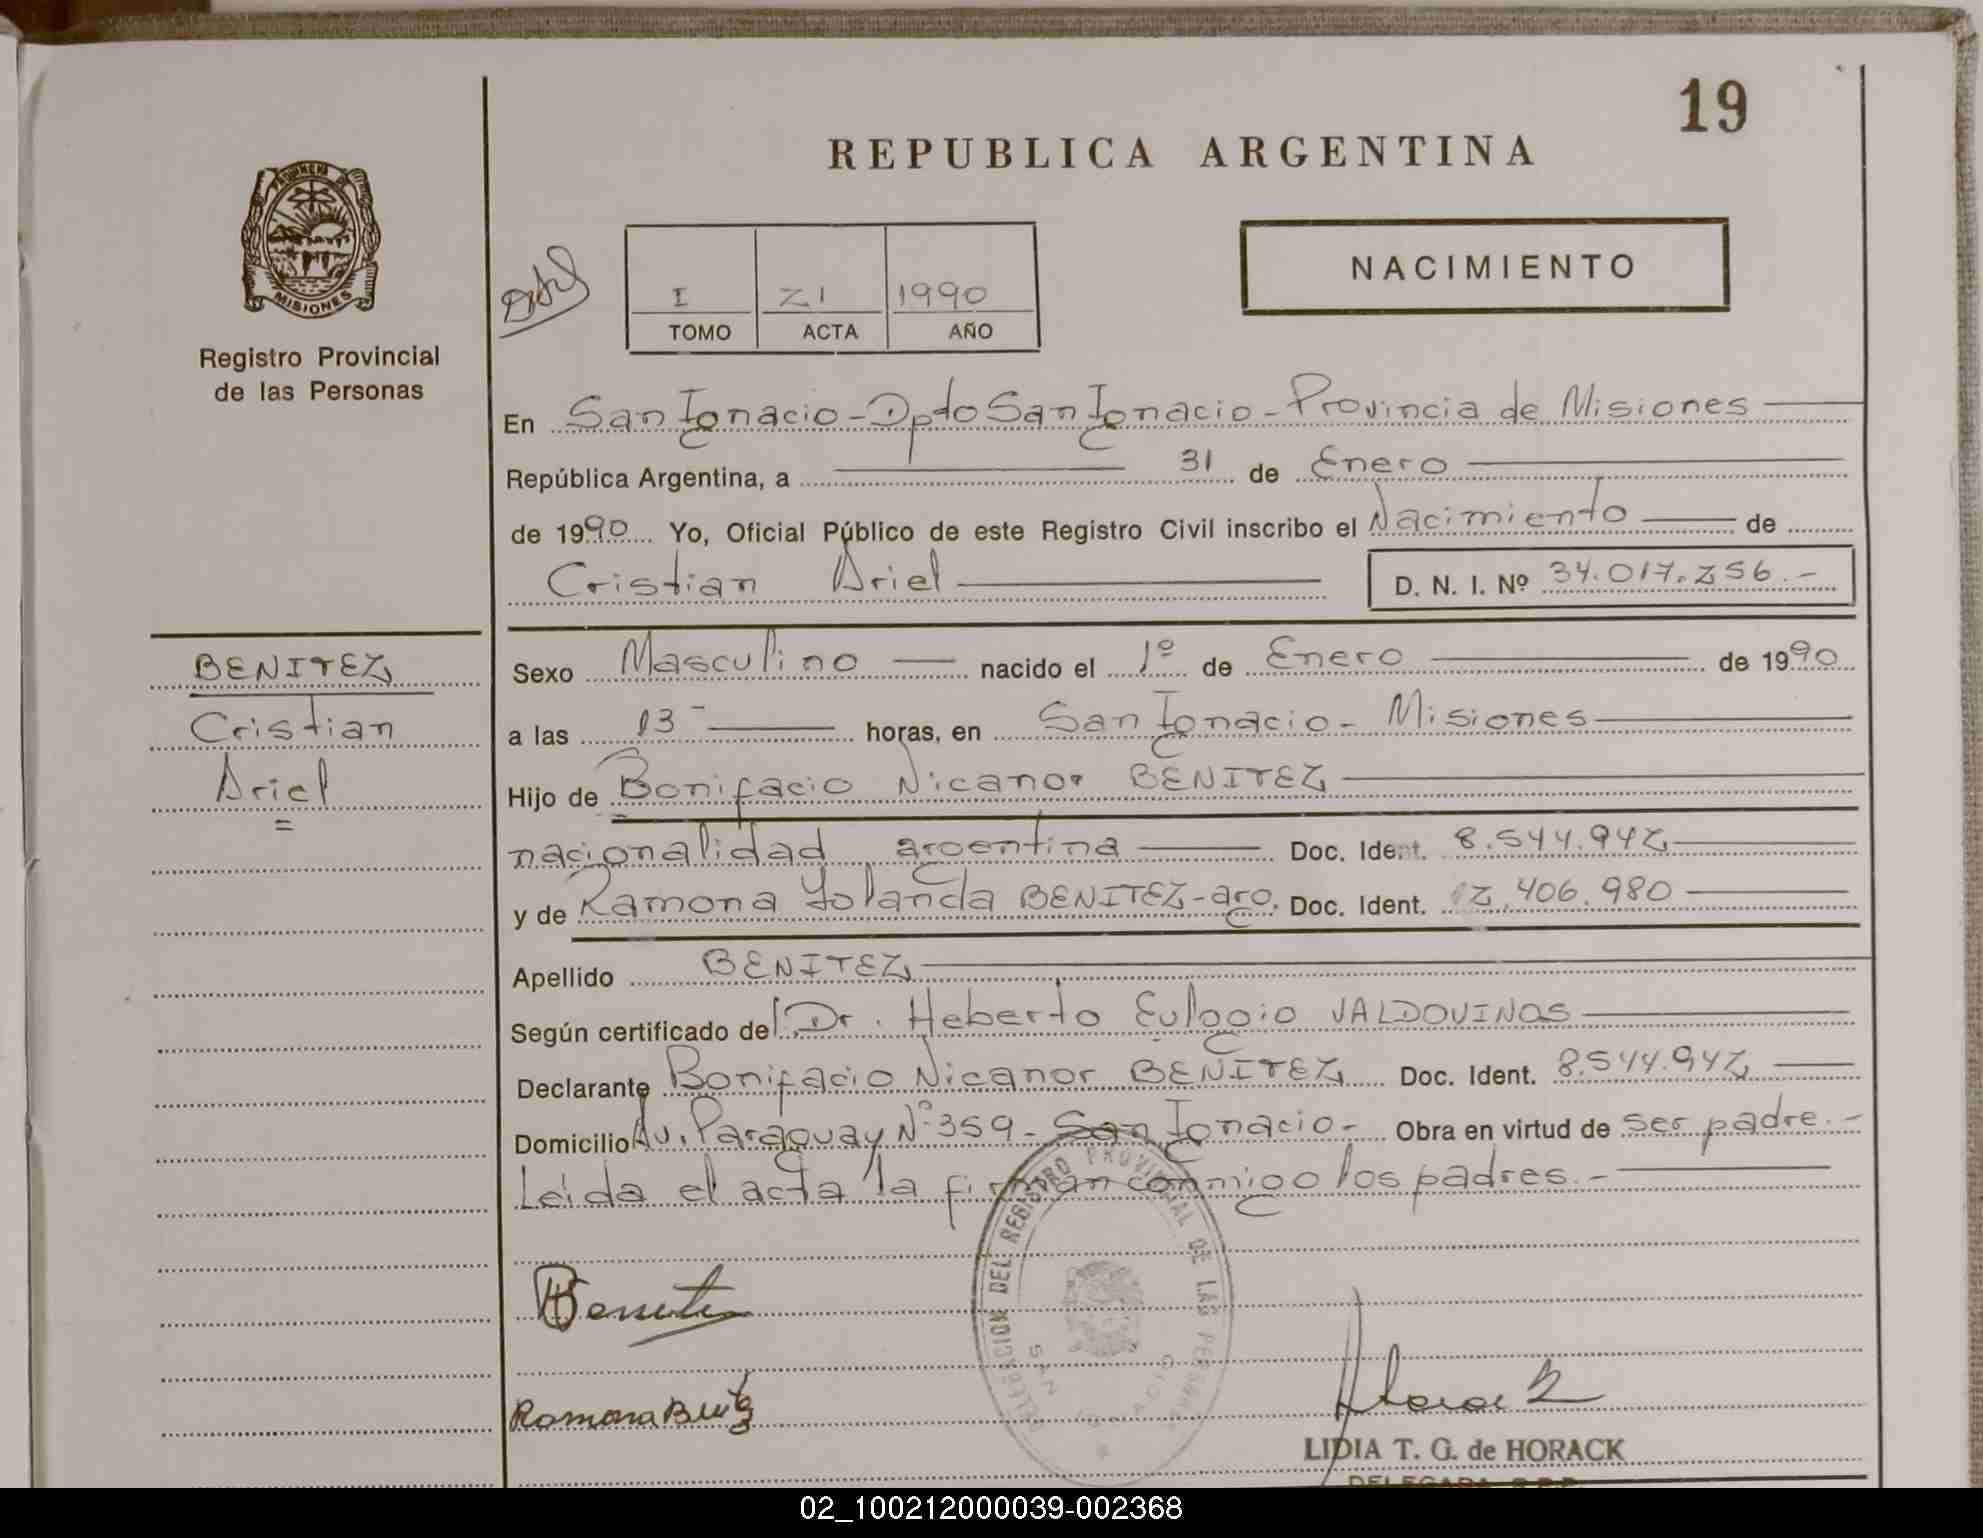 19
REPUBLICA ARGENTINA
PROVINCIA DE
MISIONES
Registro Provincial
de las Personas
I 21 1990
TOMO ACTA AÑO
NACIMIENTO
En San Ignacio - Dpto San Ignacio - Provincia de Misiones
República Argentina, a 31 de Enero
de 1990 Yo, Oficial Público de este Registro Civil inscribo el Nacimiento de
Cristian Ariel D. N. I. Nº 34.017.256.-
BENITEZ
Cristian
Ariel
Sexo Masculino nacido el 1º de Enero de 1990
a las 13- horas, en San Ignacio - Misiones
Hijo de Bonifacio Nicanor BENITEZ
nacionalidad argentina Doc. Ident. 8.544.942
y de Ramona Yolanda BENITEZ - arg. Doc. Ident. 12.406.980
Apellido BENITEZ
Según certificado del Dr. Heberto Eulogio VALDOVINOS
Declarante Bonifacio Nicanor BENITEZ Doc. Ident. 8.544.942
Domicilio Av. Paraguay Nº 359 - San Ignacio - Obra en virtud de ser padre.-
Leída el acta la firman conmigo los padres.-
DELEGACION DEL REGISTRO PROVINCIAL DE LAS PERSONAS
SAN IGNACIO
Benitez
Ramona
Horack
LIDIA T. G. de HORACK
DELEGADA R.P.P.
02_100212000039-002368